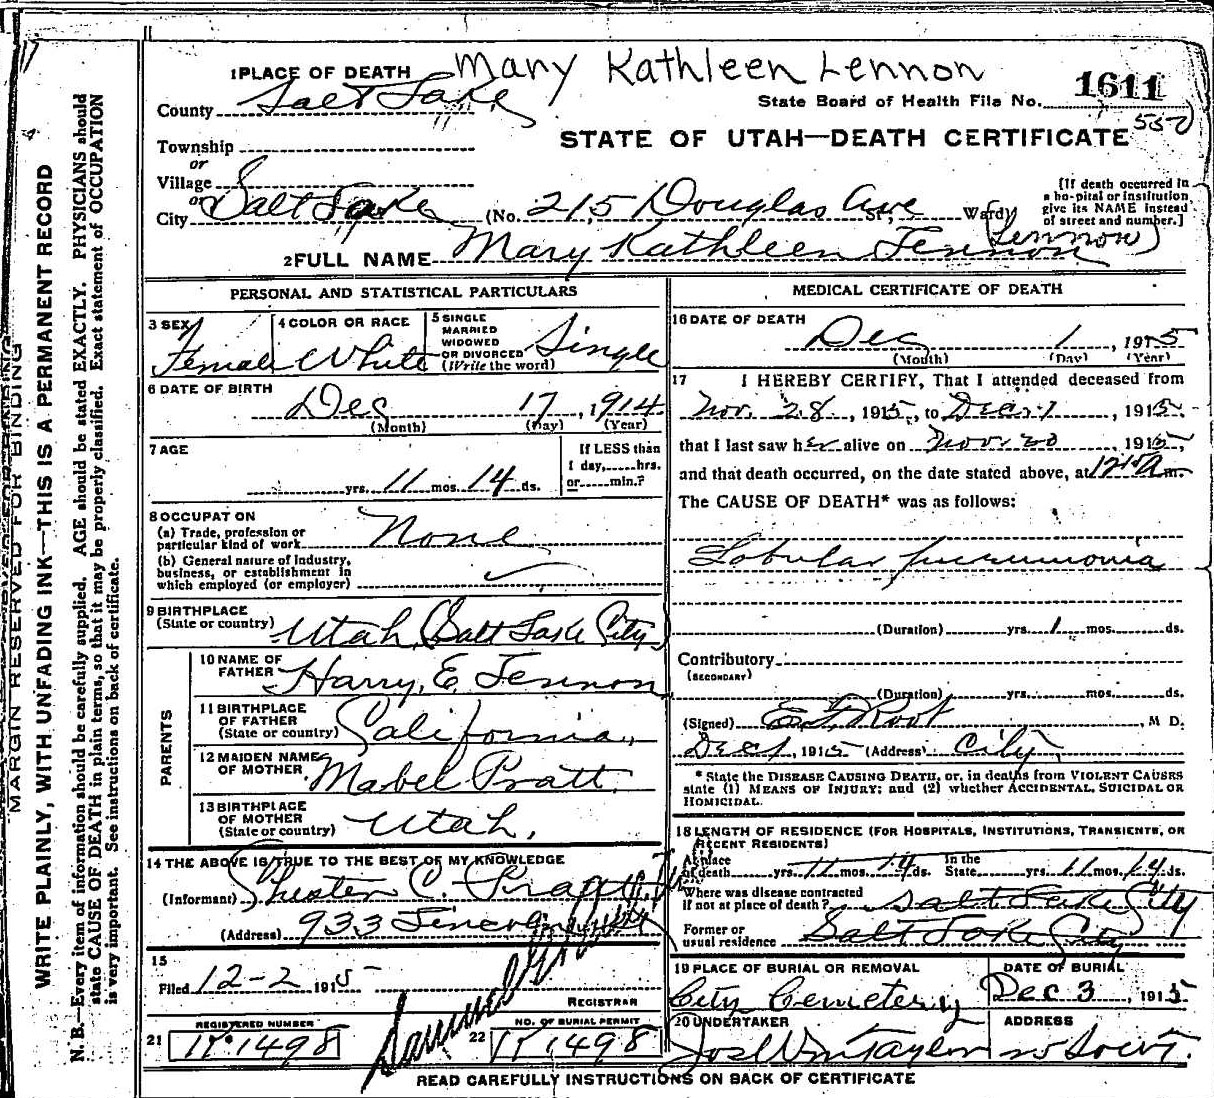 Mary Kathleen Lennon
1 PLACE OF DEATH
1611
County Salt Lake
State Board of Health File No.
550
STATE OF UTAH—DEATH CERTIFICATE
Township
or
Village
or
City Salt Lake (No. 215 Douglas Ave St., Ward)
[If death occurred in
a hospital or institution,
give its NAME instead
of street and number.]
(Lennon)
2 FULL NAME Mary Kathleen Lennon
PERSONAL AND STATISTICAL PARTICULARS
3 SEX Female
4 COLOR OR RACE White
5 SINGLE
MARRIED
WIDOWED
OR DIVORCED
(Write the word) Single
6 DATE OF BIRTH
Dec 17, 1914
(Month) (Day) (Year)
7 AGE
yrs. 11 mos. 14 ds.
If LESS than
1 day, hrs.
or min.?
8 OCCUPATION
(a) Trade, profession or
particular kind of work None
(b) General nature of industry,
business, or establishment in
which employed (or employer)
9 BIRTHPLACE
(State or country) Utah (Salt Lake City)
PARENTS
10 NAME OF
FATHER Harry E. Lennon
11 BIRTHPLACE
OF FATHER
(State or country) California
12 MAIDEN NAME
OF MOTHER Mabel Pratt
13 BIRTHPLACE
OF MOTHER
(State or country) Utah.
14 THE ABOVE IS TRUE TO THE BEST OF MY KNOWLEDGE
(Informant) C. Pratt
(Address) 933
15
Filed 12-2 1915
REGISTRAR
REGISTERED NUMBER
21 1498
NO. OF BURIAL PERMIT
22 1498
MEDICAL CERTIFICATE OF DEATH
16 DATE OF DEATH
Dec 1, 1915
(Month) (Day) (Year)
17 I HEREBY CERTIFY, That I attended deceased from
Nov. 28, 1915, to Dec. 1, 1915,
that I last saw her alive on Nov. 30, 1915,
and that death occurred, on the date stated above, at 12 15 A m.
The CAUSE OF DEATH* was as follows:
Lobular pneumonia
(Duration) yrs. 1 mos. ds.
Contributory
(SECONDARY)
(Duration) yrs. mos. ds.
(Signed) Root, M D.
Dec 1, 1915 (Address) City
* State the DISEASE CAUSING DEATH, or, in deaths from VIOLENT CAUSES
state (1) MEANS OF INJURY; and (2) whether ACCIDENTAL, SUICIDAL OR
HOMICIDAL.
18 LENGTH OF RESIDENCE (FOR HOSPITALS, INSTITUTIONS, TRANSIENTS, OR
RECENT RESIDENTS)
At place
of death yrs. 11 mos. 14 ds. In the
State yrs. 11 mos. 14 ds.
Where was disease contracted
if not at place of death? Salt Lake City
Former or
usual residence Salt Lake City
19 PLACE OF BURIAL OR REMOVAL
City Cemetery
DATE OF BURIAL
Dec 3, 1915
20 UNDERTAKER
Jos Wm Taylor
ADDRESS
READ CAREFULLY INSTRUCTIONS ON BACK OF CERTIFICATE
MARGIN RESERVED FOR BINDING
WRITE PLAINLY, WITH UNFADING INK—THIS IS A PERMANENT RECORD
N. B.—Every item of information should be carefully supplied. AGE should be stated EXACTLY. PHYSICIANS should
state CAUSE OF DEATH in plain terms, so that it may be properly classified. Exact statement of OCCUPATION
is very important. See instructions on back of certificate.